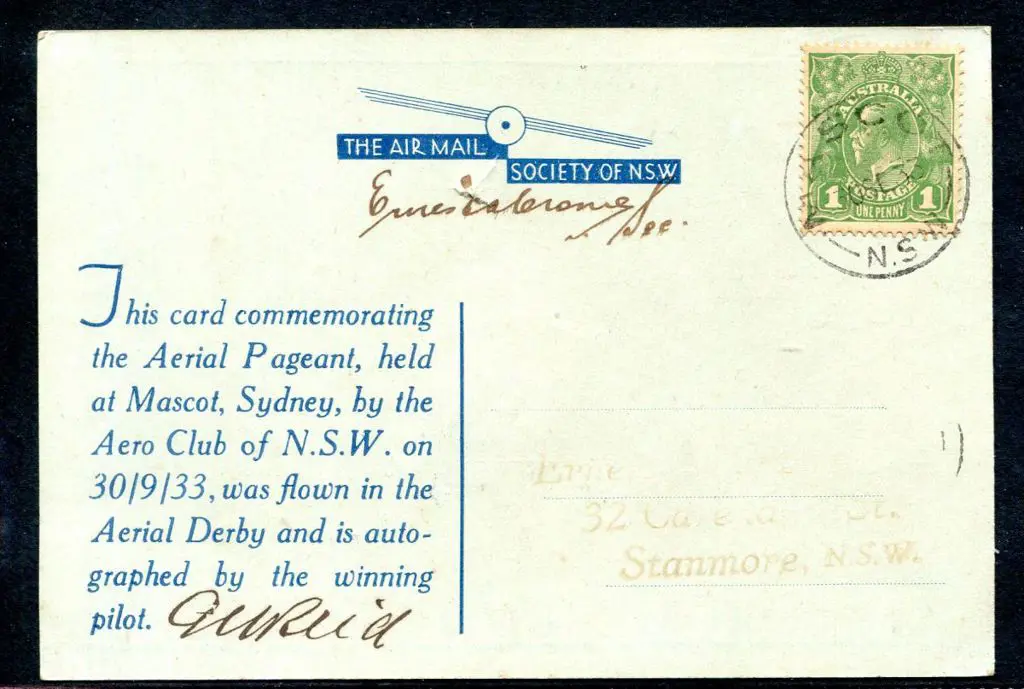 THE AIR MAIL
SOCIETY OF NSW
Sec.
AUSTRALIA
POSTAGE
1 ONE PENNY 1
N.S.W
This card commemorating
the Aerial Pageant, held
at Mascot, Sydney, by the
Aero Club of N.S.W. on
30/9/33, was flown in the
Aerial Derby and is auto-
graphed by the winning
pilot.
Reid
32
St.
Stanmore, N.S.W.